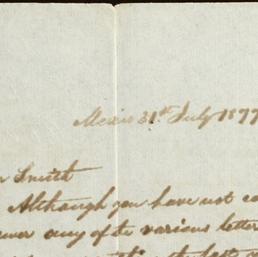 Mexico 31st July 1877
Smith
Although you have not
any of the various letter